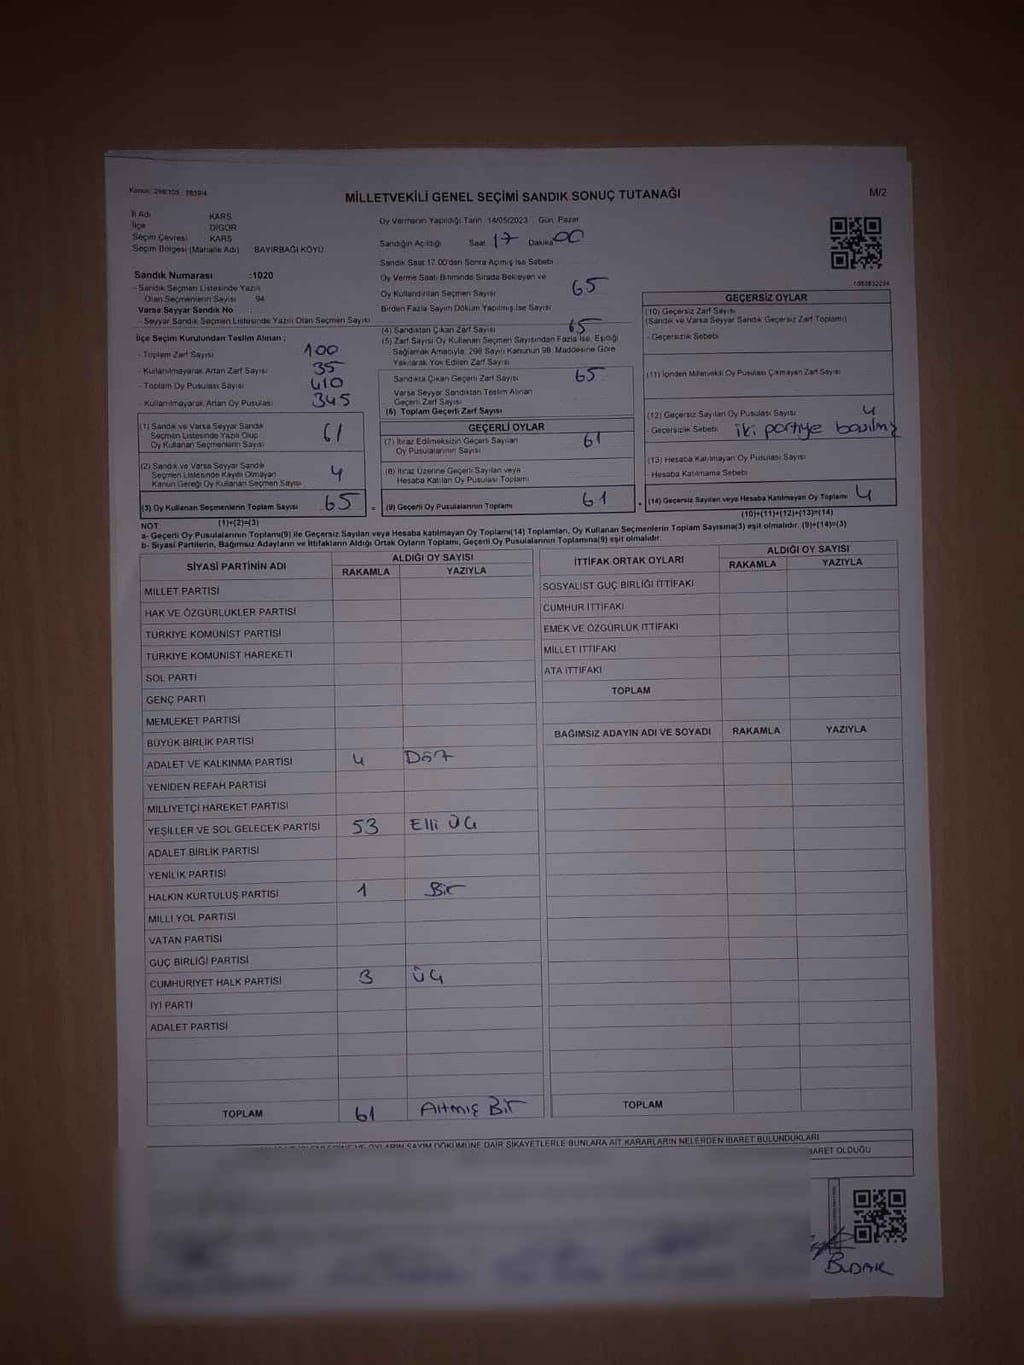 MİLLETVEKİLİ GENEL SEÇİMİ SANDIK SONUÇ TUTANAĞI
M/2
İl Adı KARS
İlçe DİGOR
Seçim Çevresi KARS
Seçim Bölgesi (Mahalle Adı) BAYIRBAĞI KÖYÜ
Oy Vermenin Yapıldığı Tarih 14/05/2023 Gün Pazar
Sandığın Açıldığı Saat 17 Dakika 00
Sandık Saat 17:00'den Sonra Açılmış İse Sebebi
Sandık Numarası :1020
- Sandık Seçmen Listesinde Yazılı
Olan Seçmenlerin Sayısı 94
Varsa Seyyar Sandık No
Seyyar Sandık Seçmen Listesinde Yazılı Olan Seçmen Sayısı
Oy Verme Saati Bitiminde Sırada Bekleyen ve
Oy Kullandırılan Seçmen Sayısı 65
Birden Fazla Sayım Döküm Yapılmış İse Sayısı
İlçe Seçim Kurulundan Teslim Alınan ;
- Toplam Zarf Sayısı 100
- Kullanılmayarak Artan Zarf Sayısı 35
- Toplam Oy Pusulası Sayısı 410
- Kullanılmayarak Artan Oy Pusulası 345
(1) Sandık ve Varsa Seyyar Sandık
Seçmen Listesinde Yazılı Olup
Oy Kullanan Seçmenlerin Sayısı 61
(2) Sandık ve Varsa Seyyar Sandık
Seçmen Listesinde Kayıtlı Olmayan
Kanun Gereği Oy Kullanan Seçmen Sayısı 4
(3) Oy Kullanan Seçmenlerin Toplam Sayısı 65
(1)+(2)=(3)
(4) Sandıktan Çıkan Zarf Sayısı 65
(5) Zarf Sayısı Oy Kullanan Seçmen Sayısından Fazla İse, Eşitliği
Sağlamak Amacıyla; 298 Sayılı Kanunun 98. Maddesine Göre
Yakılarak Yok Edilen Zarf Sayısı
Sandıkta Çıkan Geçerli Zarf Sayısı 65
Varsa Seyyar Sandıktan Teslim Alınan
Geçerli Zarf Sayısı
(6) Toplam Geçerli Zarf Sayısı
GEÇERLİ OYLAR
(7) İtiraz Edilmeksizin Geçerli Sayılan
Oy Pusulalarının Sayısı 61
(8) İtiraz Üzerine Geçerli Sayılan veya
Hesaba Katılan Oy Pusulası Toplamı
(9) Geçerli Oy Pusulalarının Toplamı 61
GEÇERSİZ OYLAR
(10) Geçersiz Zarf Sayısı
(Sandık ve Varsa Seyyar Sandık Geçersiz Zarf Toplamı)
- Geçersizlik Sebebi
(11) İçinden Milletvekili Oy Pusulası Çıkmayan Zarf Sayısı
(12) Geçersiz Sayılan Oy Pusulası Sayısı 4
- Geçersizlik Sebebi iki partiye
(13) Hesaba Katılmayan Oy Pusulası Sayısı
- Hesaba Katılmama Sebebi
(14) Geçersiz Sayılan veya Hesaba Katılmayan Oy Toplamı 4
(10)+(11)+(12)+(13)=(14)
NOT
a- Geçerli Oy Pusulalarının Toplamı(9) ile Geçersiz Sayılan veya Hesaba katılmayan Oy Toplamı(14) Toplamları, Oy Kullanan Seçmenlerin Toplam Sayısına(3) eşit olmalıdır. (9)+(14)=(3)
b- Siyasi Partilerin, Bağımsız Adayların ve İttifakların Aldığı Ortak Oyların Toplamı, Geçerli Oy Pusulalarının Toplamına(9) eşit olmalıdır.
SİYASİ PARTİNİN ADI ALDIĞI OY SAYISI
RAKAMLA YAZIYLA
MİLLET PARTİSİ
HAK VE ÖZGÜRLÜKLER PARTİSİ
TÜRKİYE KOMÜNİST PARTİSİ
TÜRKİYE KOMÜNİST HAREKETİ
SOL PARTİ
GENÇ PARTİ
MEMLEKET PARTİSİ
BÜYÜK BİRLİK PARTİSİ
ADALET VE KALKINMA PARTİSİ 4 Dört
YENİDEN REFAH PARTİSİ
MİLLİYETÇİ HAREKET PARTİSİ
YEŞİLLER VE SOL GELECEK PARTİSİ 53 Elli Üç
ADALET BİRLİK PARTİSİ
YENİLİK PARTİSİ
HALKIN KURTULUŞ PARTİSİ 1 Bir
MİLLİ YOL PARTİSİ
VATAN PARTİSİ
GÜÇ BİRLİĞİ PARTİSİ
CUMHURİYET HALK PARTİSİ 3 Üç
İYİ PARTİ
ADALET PARTİSİ
TOPLAM 61 Altmış Bir
İTTİFAK ORTAK OYLARI ALDIĞI OY SAYISI
RAKAMLA YAZIYLA
SOSYALİST GÜÇ BİRLİĞİ İTTİFAKI
CUMHUR İTTİFAKI
EMEK VE ÖZGÜRLÜK İTTİFAKI
MİLLET İTTİFAKI
ATA İTTİFAKI
TOPLAM
BAĞIMSIZ ADAYIN ADI VE SOYADI RAKAMLA YAZIYLA
TOPLAM
OYLARIN SAYIM DÖKÜMÜNE DAİR ŞİKAYETLERLE BUNLARA AİT KARARLARIN NELERDEN İBARET BULUNDUKLARI
İBARET OLDUĞU
BUDAK